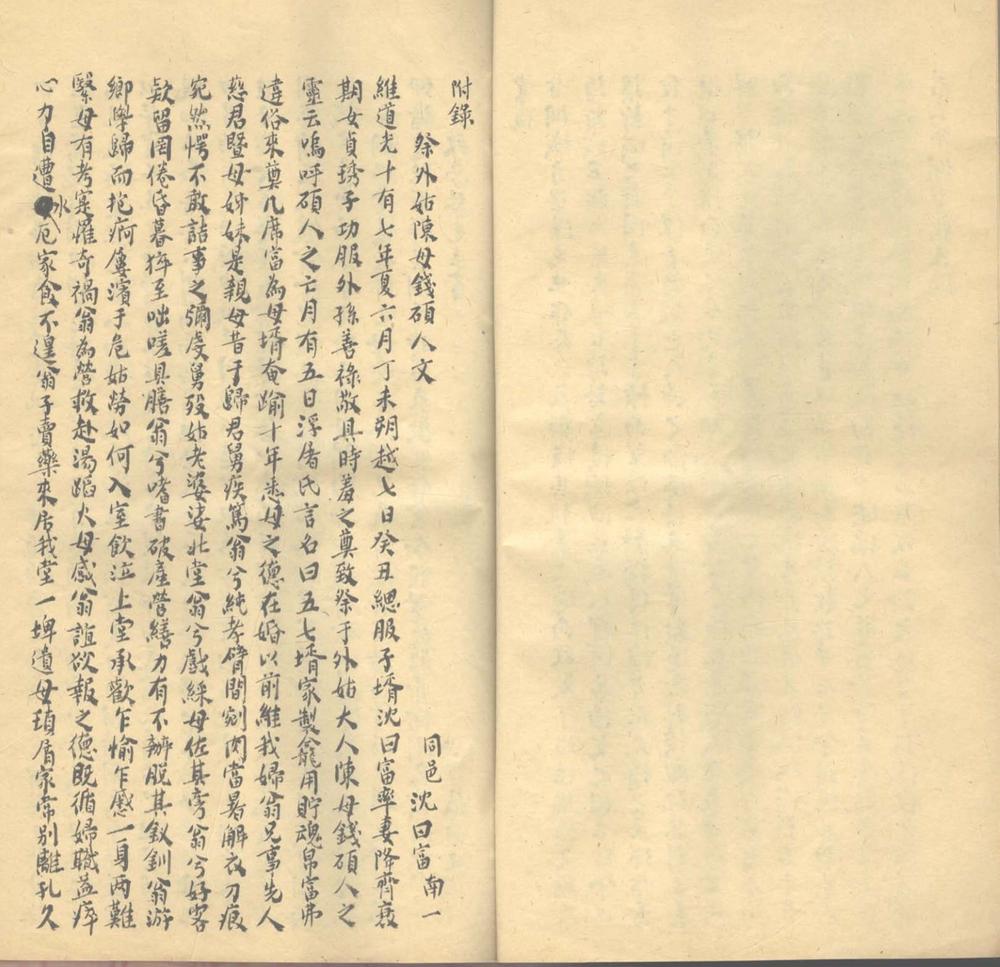 附錄
祭外姑陳母錢碩人文
同邑沈曰富南一
維道光十有七年夏六月丁未朔越七日癸丑緦服子壻沈曰富率妻降齊衰
期女貞琇子功服外孫善祿敬具時羞之奠致祭于外姑大人陳母錢碩人之
靈云嗚呼碩人之亡月有五日浮屠氏言名曰五七壻家製龕用貯魂帛富弗
違俗來奠几席富為母壻奄踰十年悉母之德在婚以前維我婦翁兄事先人
慈君暨母姊妹是親母昔于歸君舅疾篤翁兮純孝臂間剜肉當暑解衣刀痕
宛然愕不敢詰事之彌虔舅歿姑老婆娑北堂翁兮戲綵母佐其旁翁兮好客
欵留罔倦昏暮猝至咄嗟具膳翁兮嗜書破產營繕力有不辦脫其釵釧翁游
鄉學歸而抱疴屢濱于危姑勞如何入室飲泣上堂承歡乍愉乍慼一身兩難
緊母有考寔罹奇禍翁為營救赴湯蹈火母感翁誼欲報之德既循婦職益瘁
心力自遭氷厄家食不遑翁子賣藥來居我堂一埤遺母瑣屑家常別離孔久